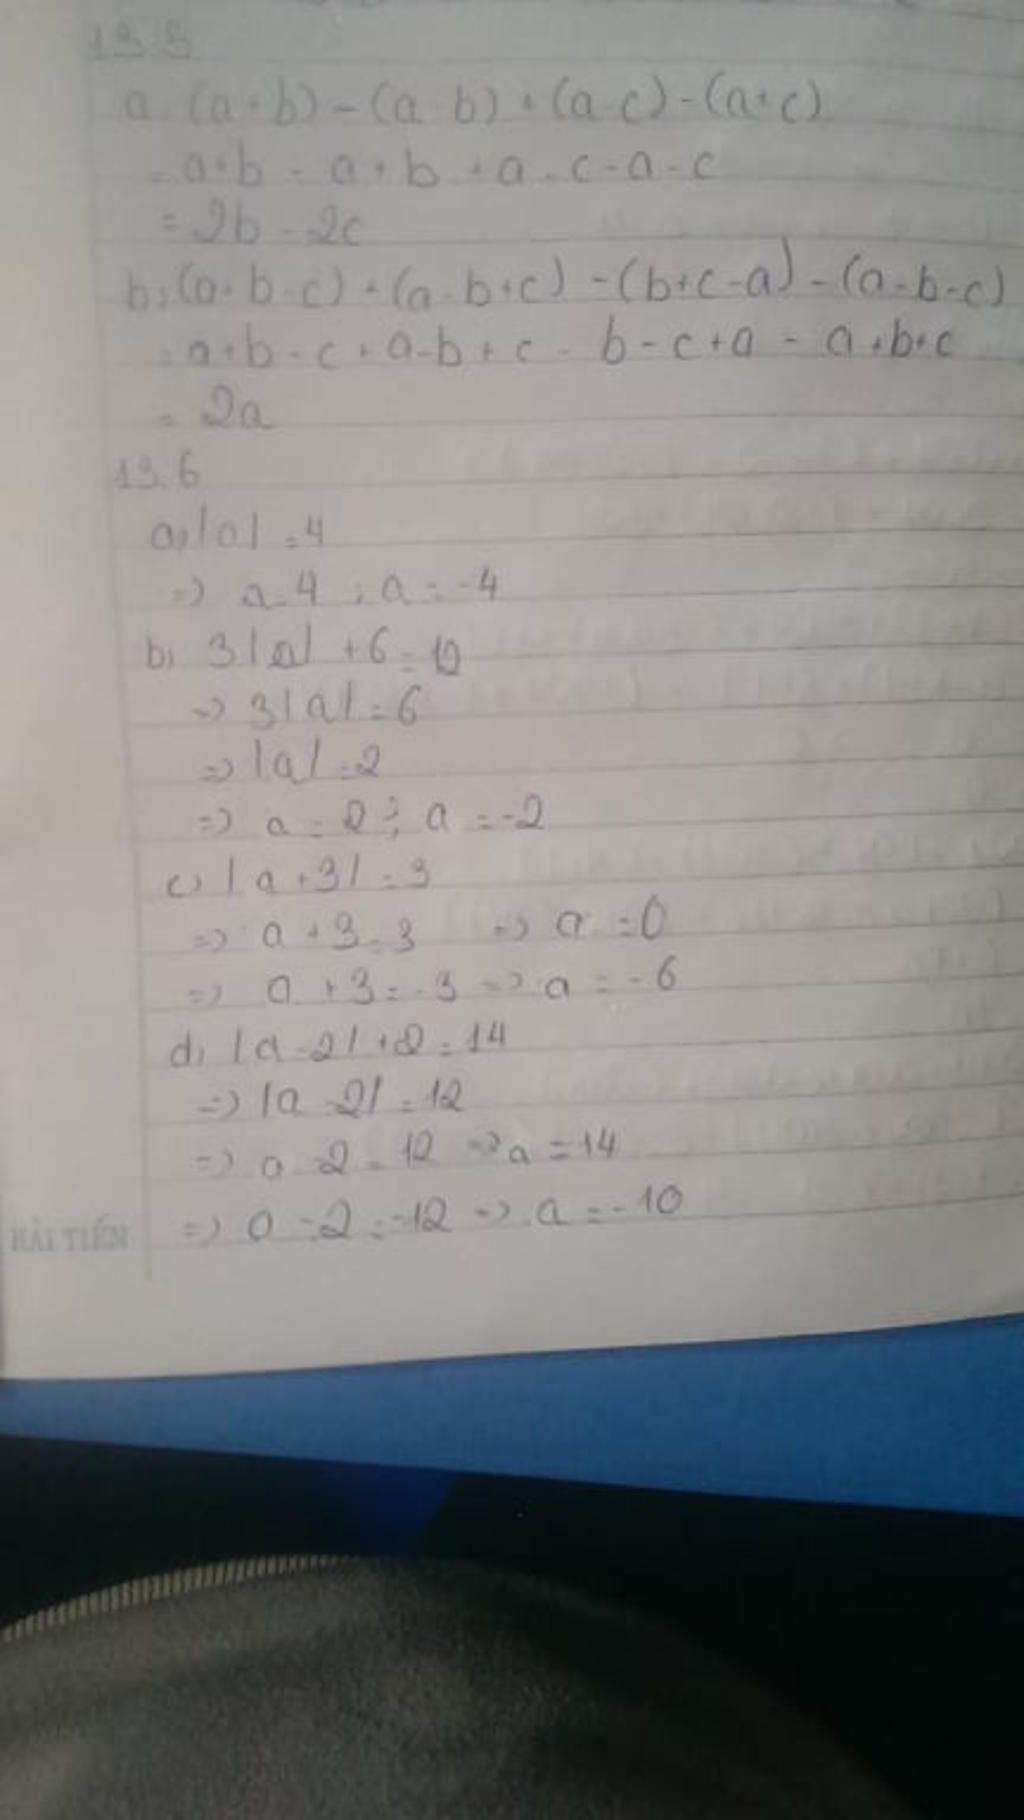 13.5
a. (a+b)-(a-b)+(a-c)-(a+c)
= a+b-a+b+a-c-a-c
= 2b-2c
b, (a+b-c)+(a-b+c)-(b+c-a)-(a-b-c)
= a+b-c+a-b+c-b-c+a-a+b+c
= 2a
13.6
a, |a| = 4
=> a = 4 ; a = -4
b, 3|a| + 6 =
=> 3|a| = 6
=> |a| = 2
=> a = 2 ; a = -2
c, |a+3| = 3
=> a+3 = 3 => a = 0
=> a+3 = -3 => a = -6
d, |a-2| + 2 = 14
=> |a-2| = 12
=> a-2 = 12 => a = 14
=> a-2 = -12 => a = -10
HẢI TIẾN